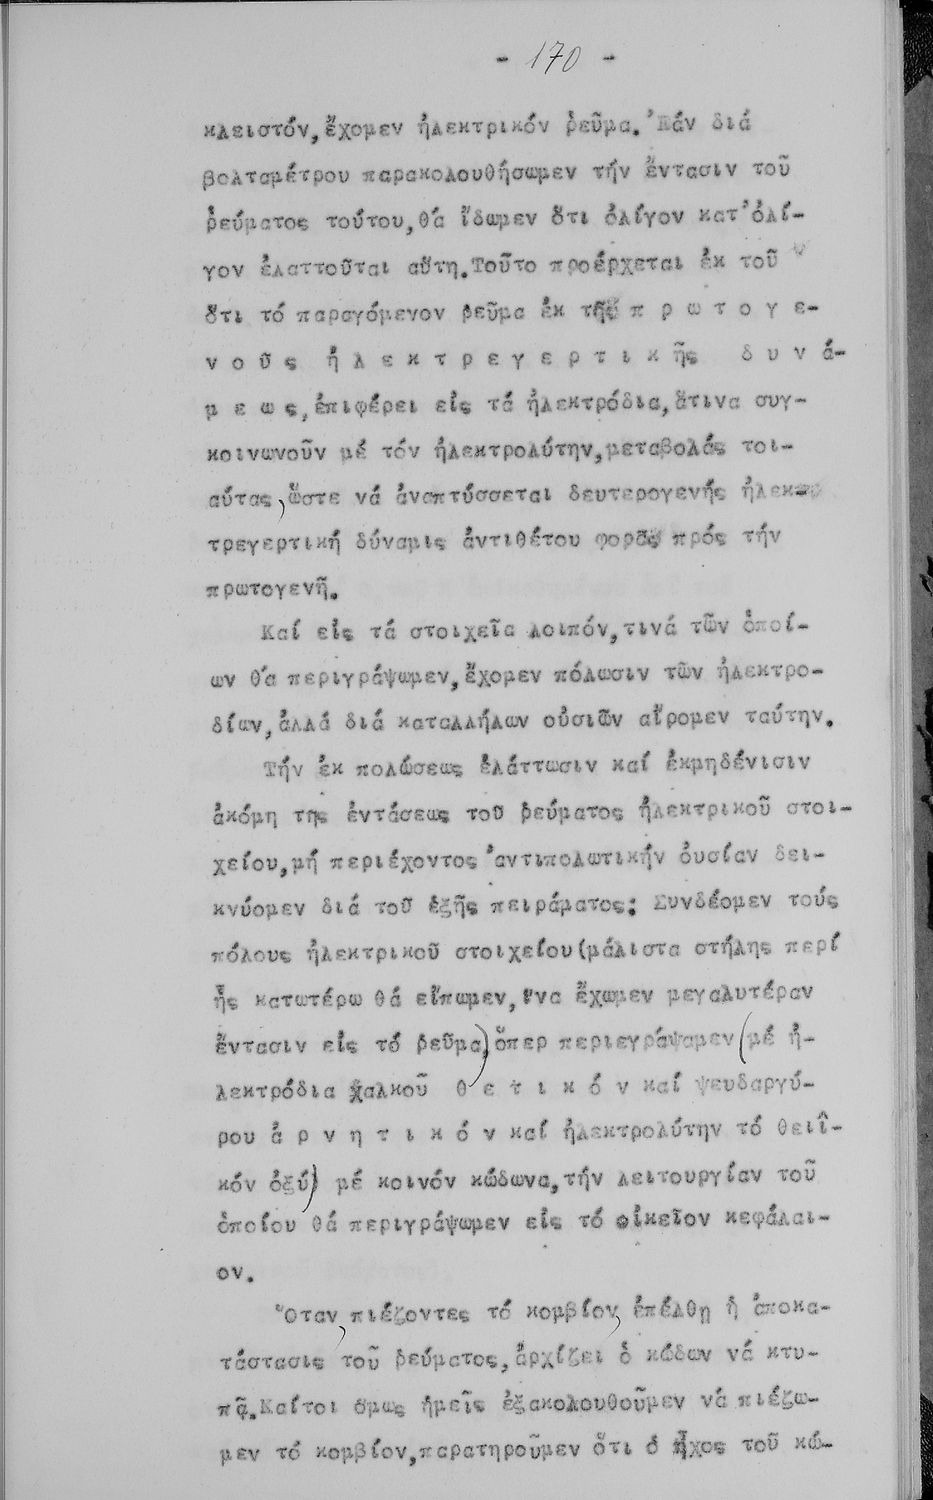 - 170 -
κλειστόν, ἔχομεν ἠλεκτρικόν ῥεῦμα. Ἐάν διά
βολταμέτρου παρακολουθήσωμεν τήν ἔντασιν τοῦ
ῥεύματος τούτου, θά ἴδωμεν ὅτι ὀλίγον κατ' ὀλί-
γον ἐλαττοῦται αὕτη. Τοῦτο προέρχεται ἐκ τοῦ
ὅτι τό παραγόμενον ρεῦμα ἐκ τῆς π ρ ω τ ο γ ε-
ν ο ῦ ς ἠ λ ε κ τ ρ ε γ ε ρ τ ι κ ῆς δ υ ν ά-
μ ε ω ς, ἐπιφέρει εἰς τά ἠλεκτρόδια, ἅτινα συγ-
κοινωνοῦν μέ τόν ἠλεκτρολύτην, μεταβολάς τοι-
αύτας, ὥστε νά ἀναπτύσσεται δευτερογενής ἠλεκ-
τρεγερτική δύναμις ἀντιθέτου φορᾶς πρός τήν
πρωτογενῆ.
Καί εἰς τά στοιχεῖα λοιπόν, τινά τῶν ὁποί-
ων θά περιγράψωμεν, ἔχομεν πόλωσιν τῶν ἠλεκτρο-
δίων, ἀλλά διά καταλλήλων οὐσιῶν αἴρομεν ταύτην.
Τήν ἐκ πολώσεως ἐλάττωσιν καί ἐκμηδένισιν
ἀκόμη της ἐντάσεως τοῦ ρεύματος ἠλεκτρικοῦ στοι-
χείου, μή περιέχοντος ἀντιπολωτικήν ὀυσίαν δει-
κνύομεν διά τοῦ ἑξῆς πειράματος: Συνδέομεν τούς
πόλους ἠλεκτρικοῦ στοιχείου (μάλιστα στήλης περί
ἧς κατωτέρω θά εἴπωμεν, ἵνα ἔχωμεν μεγαλυτέραν
ἔντασιν εἰς τό ρεῦμα) ὅπερ περιεγράψαμεν (μέ ἠ-
λεκτρόδια χαλκοῦ θ ε τ ι κ ό ν καί ψευδαργύ-
ρου ἀ ρ ν η τ ι κ ό ν καί ἠλεκτρολύτην τό θειϊ-
κόν ὀξύ) μέ κοινόν κώδωνα, τήν λειτουργίαν τοῦ
ὁποίου θά περιγράψωμεν εἰς τό οἰκεῖον κεφάλαι-
ον.
Ὅταν, πιέζοντες τό κομβίον, ἐπέλθῃ ἡ ἀποκα-
τάστασις τοῦ ρεύματος, ἀρχίζει ὁ κώδων νά κτυ-
πᾷ. Καίτοι ὅμως ἡμεῖς ἐξακολουθοῦμεν νά πιέζω-
μεν τό κομβίον, παρατηροῦμεν ὅτι ὁ ἦχος τοῦ κώ-